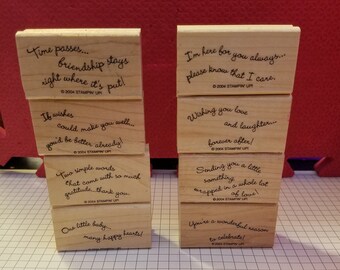 Time passes...
friendship stays
right where it's put!
© 2004 STAMPIN' UP!
If wishes
could make you well,
you'd be better already!
© 2004 STAMPIN' UP!
Two simple words
that come with so much
gratitude...thank you.
© 2004 STAMPIN' UP!
One little baby,
many happy hearts!
© 2004 STAMPIN' UP!
I'm here for you always...
please know that I care.
© 2004 STAMPIN' UP!
Wishing you love
and laughter...
forever after!
© 2004 STAMPIN' UP!
Sending you a little
something
wrapped in a whole lot
of love!
© 2004 STAMPIN' UP!
You're a wonderful reason
to celebrate!
© 2004 STAMPIN' UP!